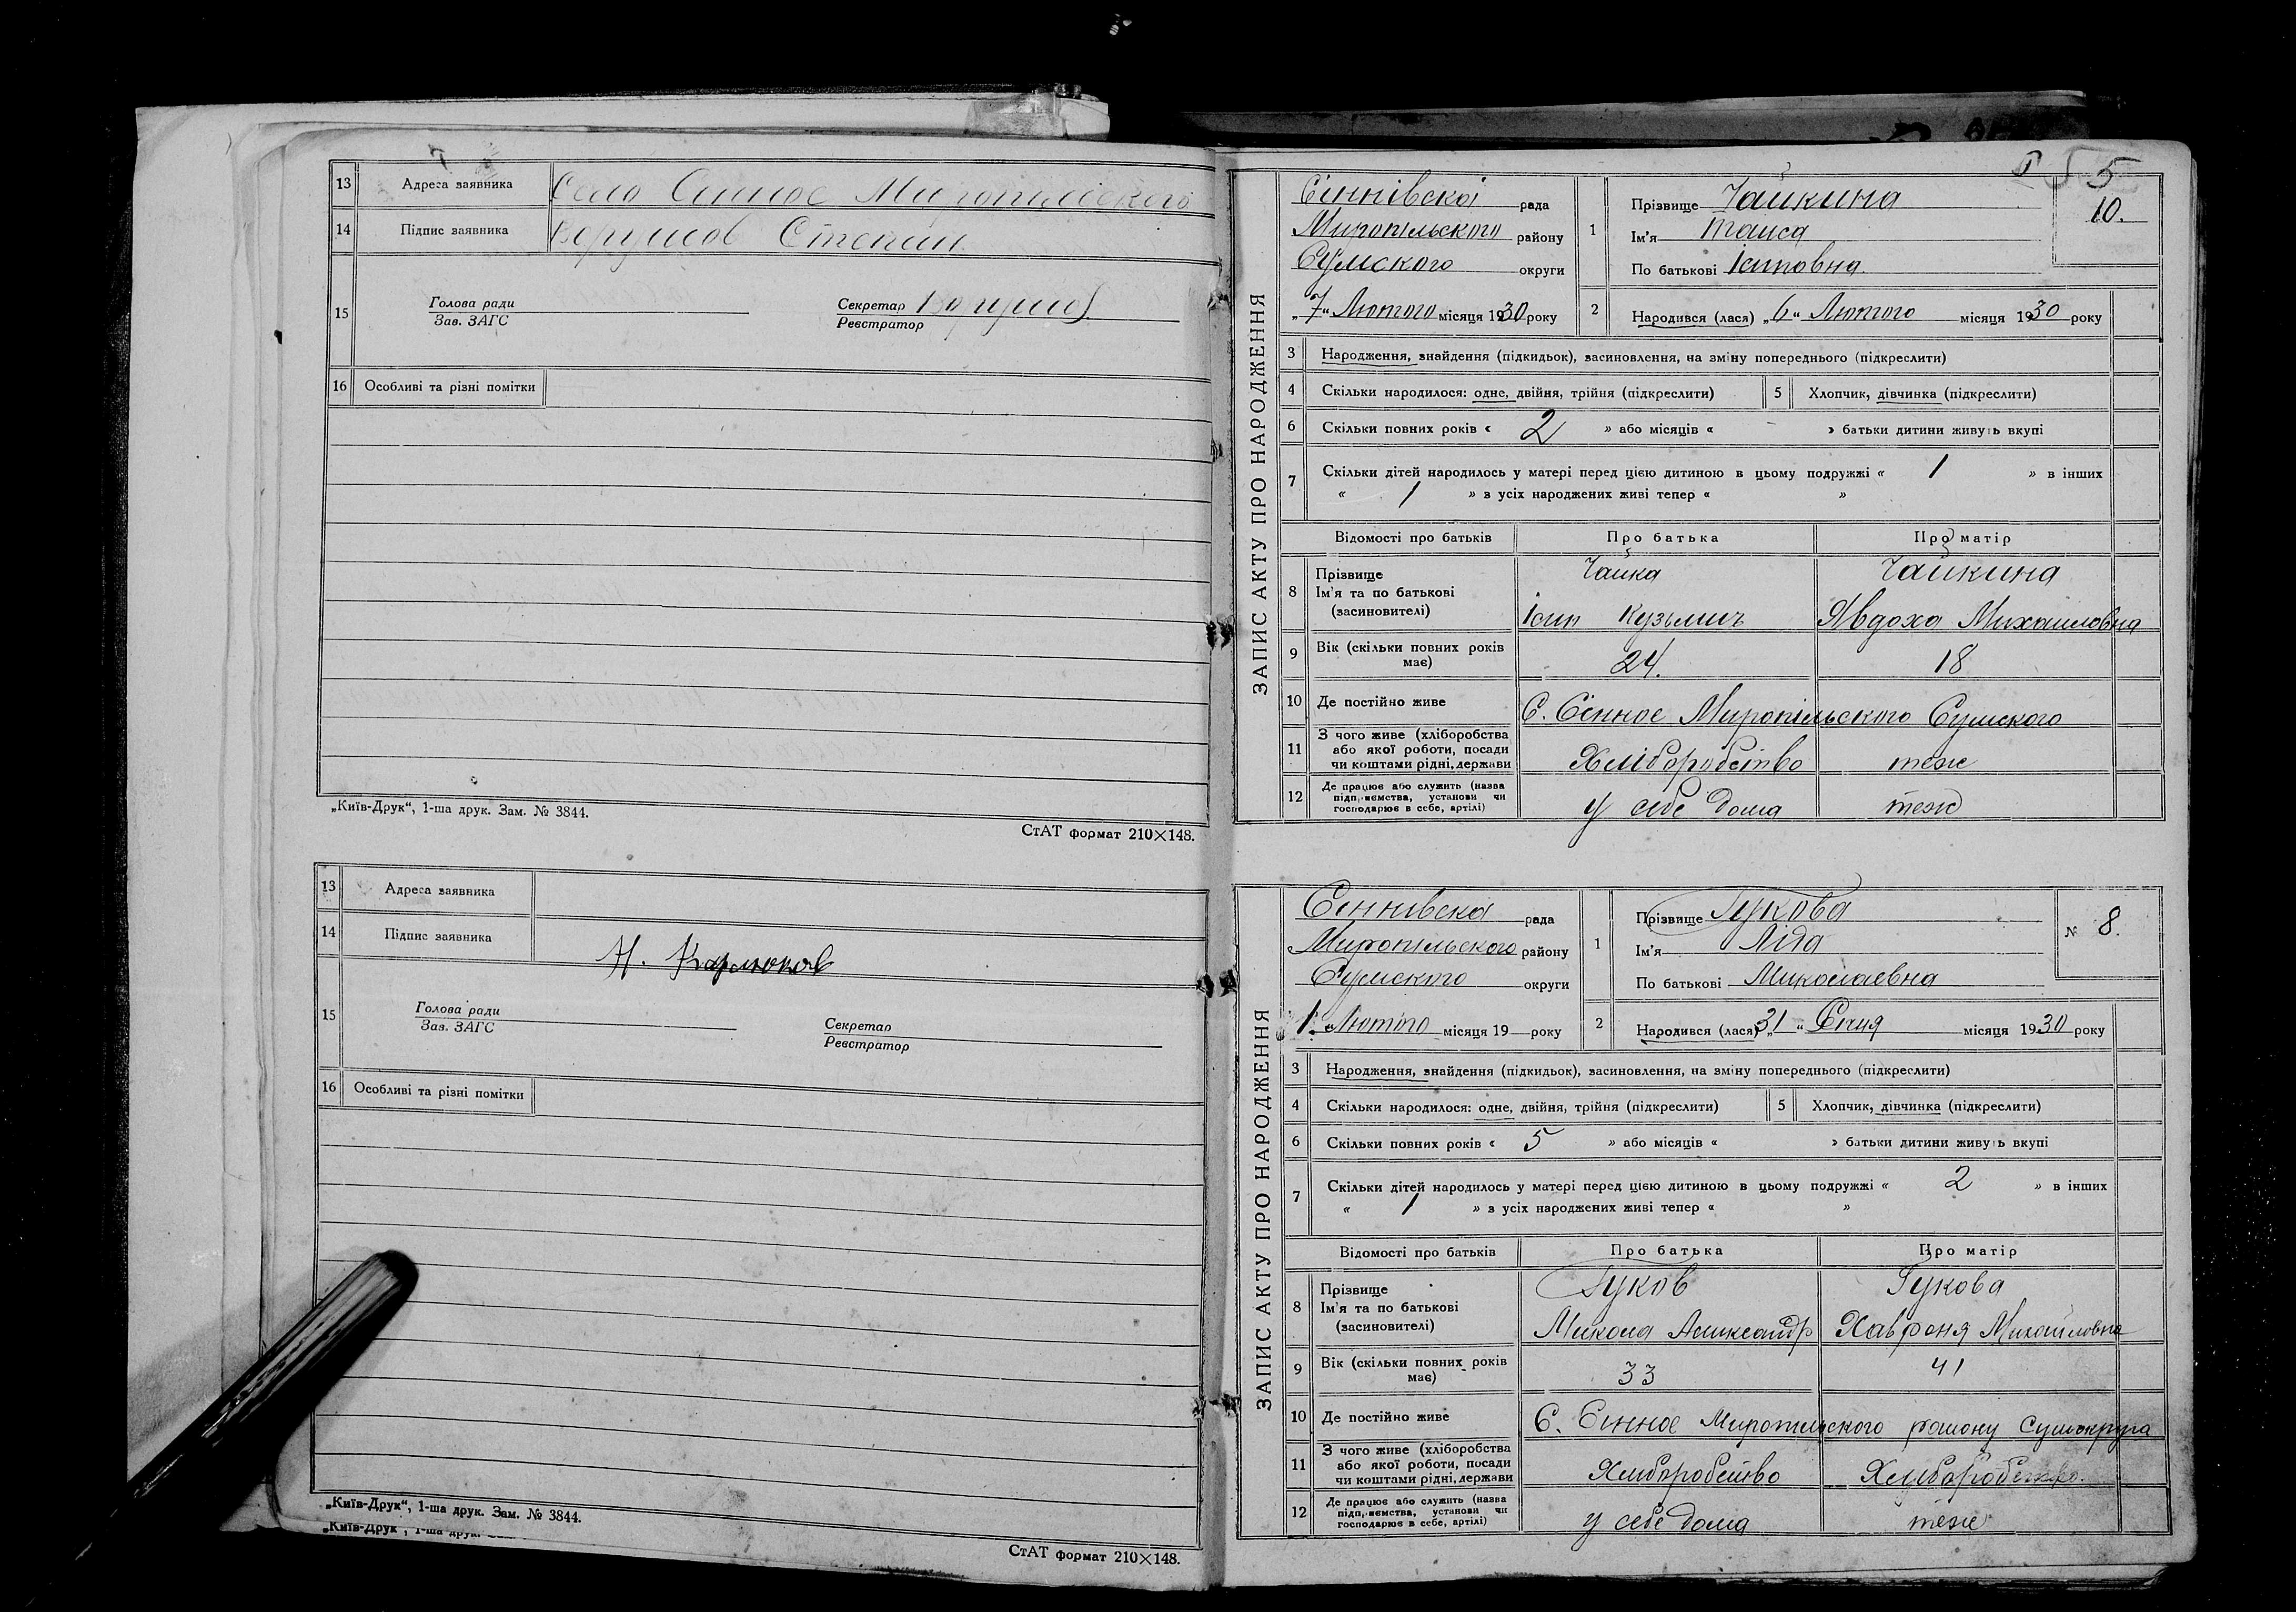 13 Адреса заявника Село Сінное Миропільского
14 Підпис заявника Степан
15 Голова ради
Зав. ЗАГС
Секретар
Реєстратор
16 Особливі та різні помітки
„Київ-Друк“, 1-ша друк. Зам. № 3844.
СтАТ формат 210×148.
13 Адреса заявника
14 Підпис заявника
Н. Карпюков
15 Голова ради
Зав. ЗАГС
Секретар
Реєстратор
16 Особливі та різні помітки
„Київ-Друк“, 1-ша друк. Зам. № 3844.
„Київ-Друк“, 1-ша друк.
СтАТ формат 210×148.
5
10.
ЗАПИС АКТУ ПРО НАРОДЖЕННЯ
Сіннівска рада
Миропільского району
Сумского округи
„7“ Лютого місяця 1930 року
1 Прізвище Чайкина
Ім'я Таиса
По батьковіІсиповна
2 Народився (лася) „6“ Лютого місяця 1930 року
3 Народження, знайдення (підкидьок), засиновлення, на зміну попереднього (підкреслити)
4 Скільки народилося: одне, двійня, трійня (підкреслити) 5 Хлопчик, дівчинка (підкреслити)
6 Скільки повних років « 2 » або місяців « - » батьки дитини живуть вкупі
7 Скільки дітей народилось у матері перед цією дитиною в цьому подружжі « 1 » в інших
« 1 » з усіх народжених живі тепер « »
Відомості про батьків Про батька Про матір
8 Прізвище
Ім'я та по батькові
(засиновителі)
Чайка Чайкина
Ісип Кузьмич Явдоха Михаиловна
9 Вік (скільки повних років має) 24. 18
10 Де постійно живе С. Сінное Миропільского Сумского
11 З чого живе (хліборобства
або якої роботи, посади
чи коштами рідні, держави
Хліборобство теж
12 Де працює або служить (назва
підприємства, установи чи
господарює в себе, артілі)
у себе дома теж
ЗАПИС АКТУ ПРО НАРОДЖЕННЯ
Сіннівска рада
Миропільского району
Сумского округи
1 Лютого місяця 19 року
1 Прізвище Гукова
Ім'я Ліда
По батькові Миколаевна
№ 8.
2 Народився (лася) „31“ Січня місяця 1930 року
3 Народження, знайдення (підкидьок), засиновлення, на зміну попереднього (підкреслити)
4 Скільки народилося: одне, двійня, трійня (підкреслити) 5 Хлопчик, дівчинка (підкреслити)
6 Скільки повних років « 5 » або місяців « » батьки дитини живуть вкупі
7 Скільки дітей народилось у матері перед цією дитиною в цьому подружжі « 2 » в інших
« 1 » з усіх народжених живі тепер « »
Відомості про батьків Про батька Про матір
8 Прізвище
Ім'я та по батькові
(засиновителі)
Гуков Гукова
Микола Александр Хавроня Михайловна
9 Вік (скільки повних років має) 33 41
10 Де постійно живе С. Сінное Миропільского району Сумокруга
11 З чого живе (хліборобства
або якої роботи, посади
чи коштами рідні, держави
Хліборобство Хліборобство.
12 Де працює або служить (назва
підприємства, установи чи
господарює в себе, артілі)
у себе дома теж